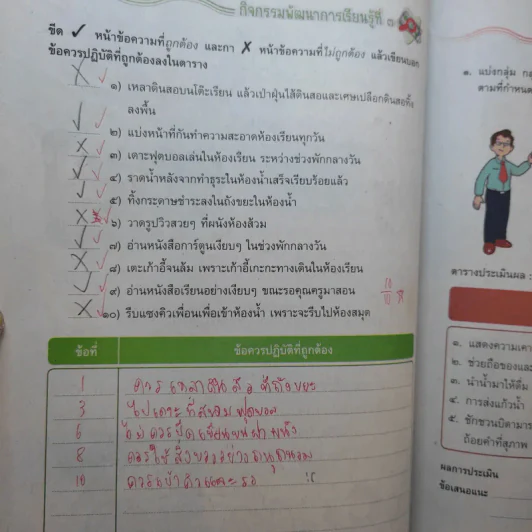 กิจกรรมพัฒนาการเรียนรู้ที่ ๑
ขีด ✓ หน้าข้อความที่ถูกต้อง และกา ✗ หน้าข้อความที่ไม่ถูกต้อง แล้วเขียนบอก
ข้อควรปฏิบัติที่ถูกต้องลงในตาราง
✗ ๑) เหลาดินสอบนโต๊ะเรียน แล้วเป่าฝุ่นไส้ดินสอและเศษเปลือกดินสอทิ้ง
ลงพื้น
✓ ๒) แบ่งหน้าที่กันทำความสะอาดห้องเรียนทุกวัน
✗ ๓) เตะฟุตบอลเล่นในห้องเรียน ระหว่างช่วงพักกลางวัน
✓ ๔) ราดน้ำหลังจากทำธุระในห้องน้ำเสร็จเรียบร้อยแล้ว
✓ ๕) ทิ้งกระดาษชำระลงในถังขยะในห้องน้ำ
✗ ๖) วาดรูปวิวสวยๆ ที่ผนังห้องส้วม
✓ ๗) อ่านหนังสือการ์ตูนเงียบๆ ในช่วงพักกลางวัน
✗ ๘) เตะเก้าอี้จนล้ม เพราะเก้าอี้เกะกะทางเดินในห้องเรียน
✓ ๙) อ่านหนังสือเรียนอย่างเงียบๆ ขณะรอคุณครูมาสอน
✗ ๑๐) รีบแซงคิวเพื่อนเพื่อเข้าห้องน้ำ เพราะจะรีบไปห้องสมุด
10
10
ข้อที่ ข้อควรปฏิบัติที่ถูกต้อง
1 ควร
3 ไปเตะ ที่สนามฟุตบอล
6 ไม่ควรขีดเขียนบนฝาผนัง
8 ควรใช้สิ่งของอย่าง
10 ควรเข้าคิว รอ
๑. แบ่งกลุ่ม
ตามที่กำหนด
ตารางประเมินผล :
๑. แสดงความเคา
๒. ช่วยถือของและ
๓. นำน้ำมาให้ดื่ม
๔. การส่งแก้วน้ำ
๕. ชักชวนบิดามาร
ถ้อยคำที่สุภาพ
ผลการประเมิน
ข้อเสนอแนะ